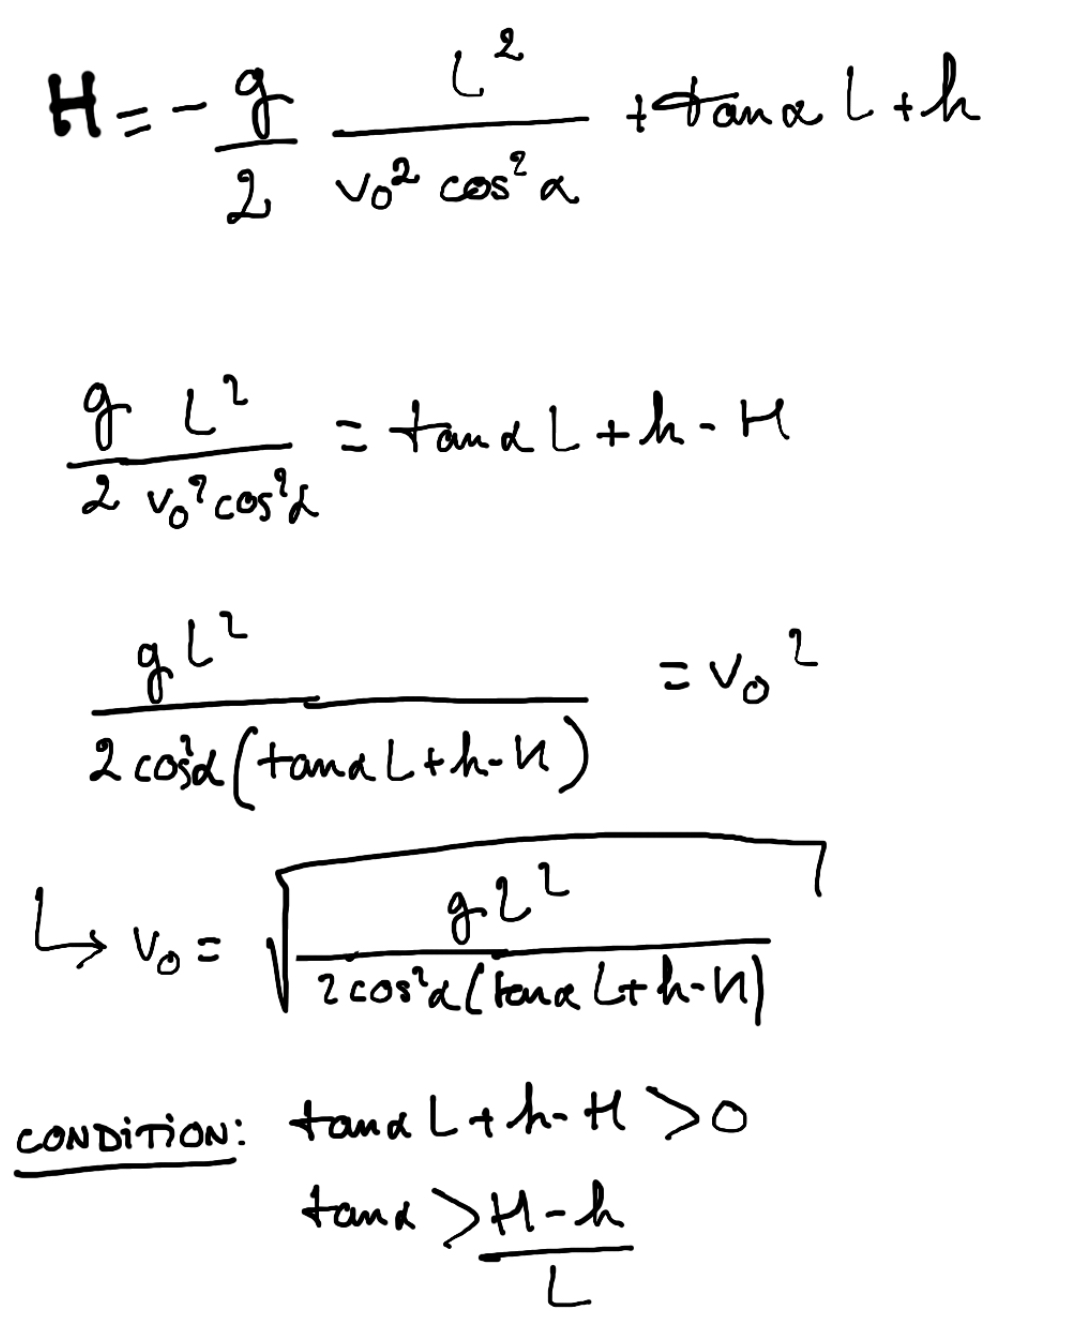 H = - g/2 L²/(v₀² cos² α) + tan α L + h
g L²/(2 v₀² cos² α) = tan α L + h - H
g L²/(2 cos² α (tan α L + h - H)) = v₀²
↳ v₀ = √(g L²/(2 cos² α (tan α L + h - H)))
CONDITION: tan α L + h - H > 0
tan α > (H - h)/L